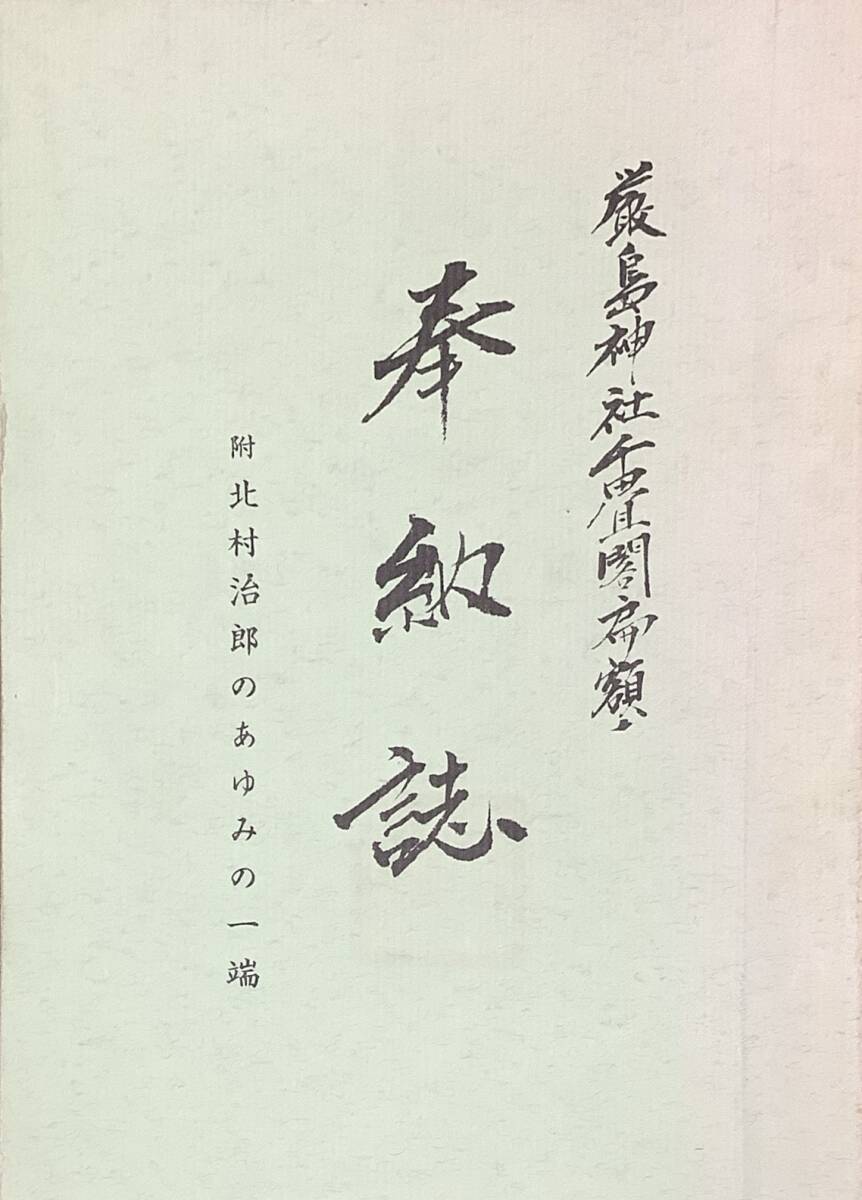 厳島神社千畳閣扁額
奉納誌
附北村治郎のあゆみの一端